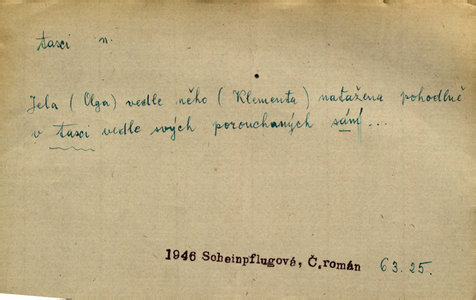 taxi n.
Jela (Olga) vedle něho (Klementa) natažena pohodlně
v taxi vedle svých porouchaných sání...
1946 Scheinpflugové, Č.román 63.25.